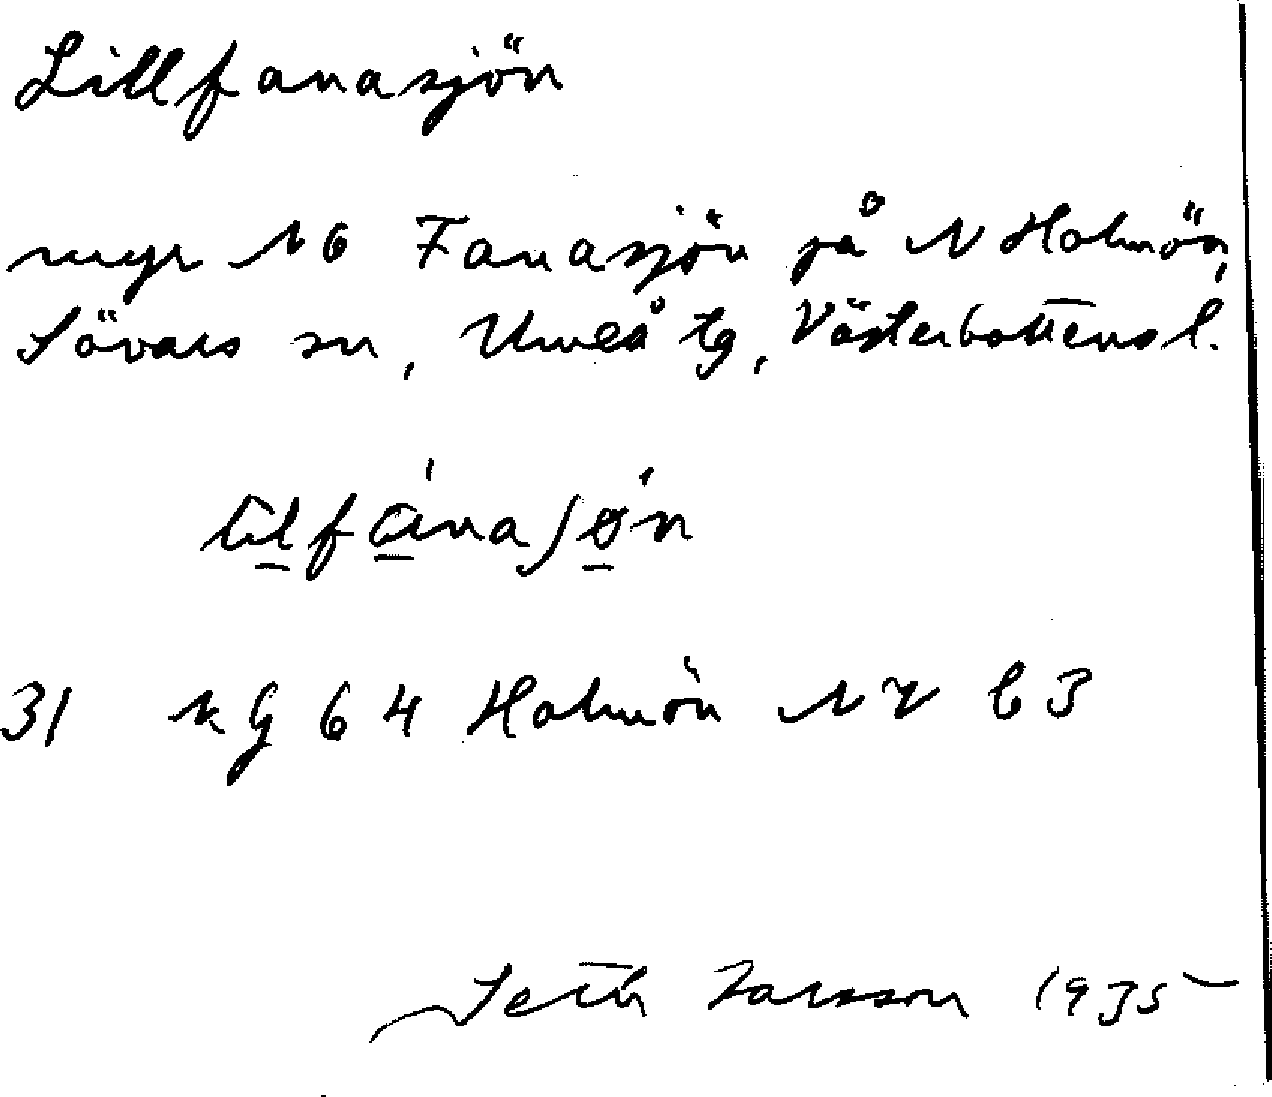 Lillfanasjön
myr N6 Fanasjön på N Holmön,
Sävars sn, Umeå tg, Västerbottens l.
31 64 Holmön NV b3
Seth Larsson 1935